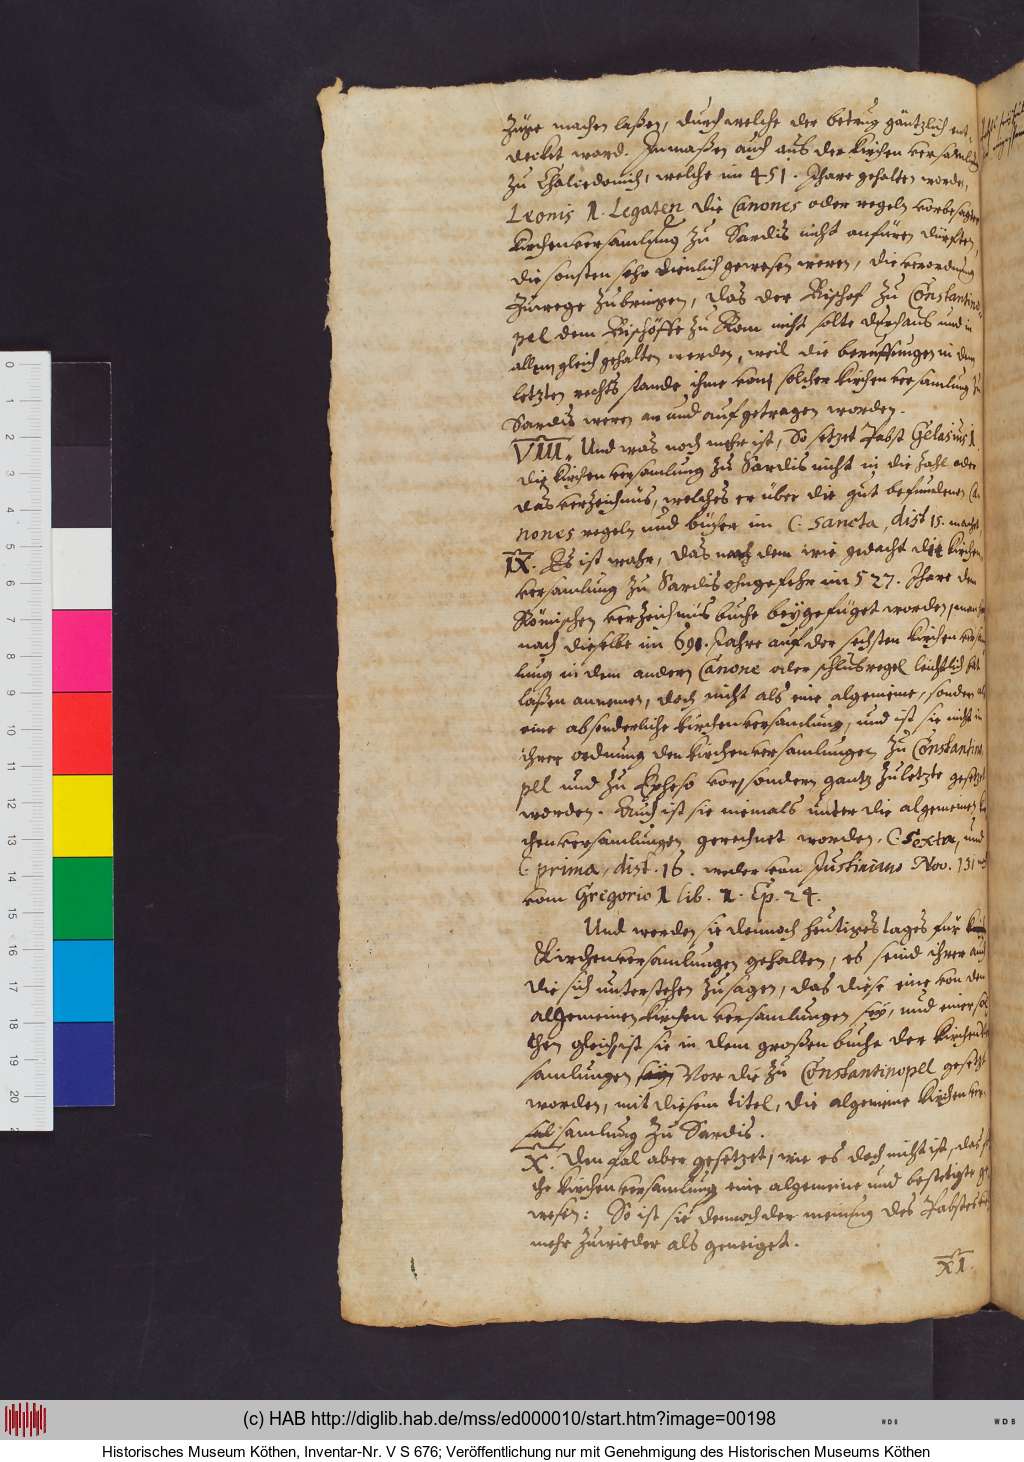 Züge machen laßen, durch welche der betrug gäntzlich ent-
decket ward. Inmaßen auch aus der Kirchen versamlung
zu Chalcedonien, welche im 451. Jhare gehalten worde,
Leonis 1. Legaten die Canones oder regeln vorbesagter
Kirchenversamlung zu Sardis nicht anfüren dürften,
die sonsten sehr dienlich gewesen weren, die verordnung
Zuwege zubringen, das der Bischof zu Constantino-
pel dem Bischoffe zu Rom nicht solte durchaus und in
allem gleich gehalten werden, weil die beruffungen in dem
letzten rechts stande ihme von solcher Kirchen versamlung zu
Sardis weren an und aufgetragen worden.
VIII. Und was noch mehr ist, So setzet Pabst Gelasius 1
die Kirchen versamlung zu Sardis nicht in die zahl oder
das verzeichnüs, welches er über die gut befundenen Ca-
nones regeln und bücher im C. Sancta, dist 15. machet,
IX. Es ist wahr, das nach dem wie gedacht die Kirchen-
versamlung zu Sardis ohngefehr im 527. Jhare dem
Römischen verzeichnüs buche beygefüget worden, man
nach dieselbe im 691. Jahre auf der sechsten Kirchen versam
lung in dem andern Canone oder schlusregel leichtlich hat
laßen annemen, doch nicht als eine algemeine, sonder als
eine absonderliche Kirchenversamlung, und ist sie nicht in
ihrer ordnung den Kirchenversamlungen zu Constantino
pel und zu Epheso vor, sondern gantz zuletzte gesetzt
worden. Auch ist sie niemals unter die algemeinen Kir
chenversamlungen gerechnet worden. C. Sexta, und
C prima, dist. 16. weder von Justiniano Nov. 131 noch
vom Gregorio 1 lib. 1. Ep. 24.
Und werden sie dennoch heutiges tages für
Kirchenversamlungen gehalten, es seind ihrer auch
die sich unterstehen zusagen, das diese eine von den
algemeinen Kirchen versamlungen sey, und einer sol
chen gleich ist sie in dem großen buche der Kirchenver
samlungen Vor die zu Constantinopel gesetzt
worden, mit diesem titel, die algemeine Kirchenver-
samlung zu Sardis.
X. Den fal aber gesetzet, wie es doch nicht ist, das
che Kirchenversamlung eine algemeine und bestetigte ge
wesen: So ist sie dennoch der meinung des Pabstes
mehr zuwieder als geneiget.
XI.
0
1
2
3
4
5
6
7
8
9
10
11
12
13
14
15
16
17
18
19
20
(c) HAB http://diglib.hab.de/mss/ed000010/start.htm?image=00198
W D B
W D B
Historisches Museum Köthen, Inventar-Nr. V S 676; Veröffentlichung nur mit Genehmigung des Historischen Museums Köthen